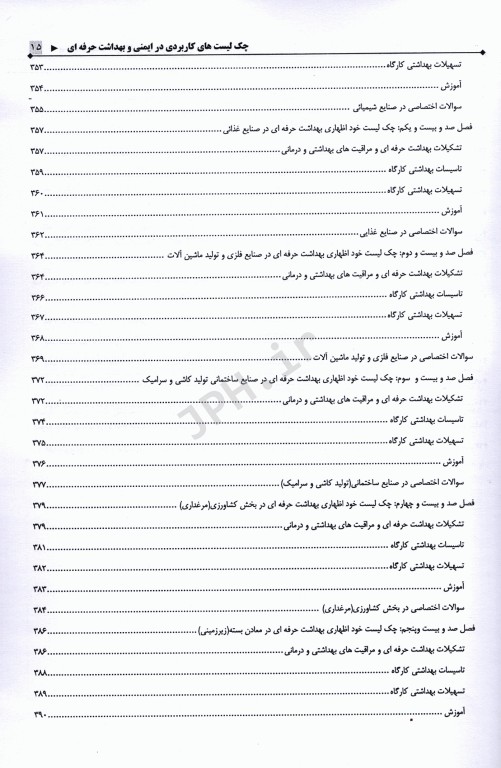 چک لیست های کاربردی در ایمنی و بهداشت حرفه ای ◄ ۱۵
تسهیلات بهداشتی کارگاه ۳۵۳
آموزش ۳۵۴
سوالات اختصاصی در صنایع شیمیائی ۳۵۵
فصل صد و بیست و یکم: چک لیست خود اظهاری بهداشت حرفه ای در صنایع غذائی ۳۵۷
تشکیلات بهداشت حرفه ای و مراقبت های بهداشتی و درمانی ۳۵۷
تاسیسات بهداشتی کارگاه ۳۵۹
تسهیلات بهداشتی کارگاه ۳۶۰
آموزش ۳۶۱
سوالات اختصاصی در صنایع غذایی ۳۶۲
فصل صد و بیست و دوم: چک لیست خود اظهاری بهداشت حرفه ای در صنایع فلزی و تولید ماشین آلات ۳۶۴
تشکیلات بهداشت حرفه ای و مراقبت های بهداشتی و درمانی ۳۶۴
تاسیسات بهداشتی کارگاه ۳۶۶
تسهیلات بهداشتی کارگاه ۳۶۷
آموزش ۳۶۸
سوالات اختصاصی در صنایع فلزی و تولید ماشین آلات ۳۶۹
فصل صد و بیست و سوم: چک لیست خود اظهاری بهداشت حرفه ای در صنایع ساختمانی تولید کاشی و سرامیک ۳۷۲
تشکیلات بهداشت حرفه ای و مراقبت های بهداشتی و درمانی ۳۷۲
تاسیسات بهداشتی کارگاه ۳۷۴
تسهیلات بهداشتی کارگاه ۳۷۵
آموزش ۳۷۶
سوالات اختصاصی در صنایع ساختمانی(تولید کاشی و سرامیک) ۳۷۷
فصل صد و بیست و چهارم: چک لیست خود اظهاری بهداشت حرفه ای در بخش کشاورزی(مرغداری) ۳۷۹
تشکیلات بهداشت حرفه ای و مراقبت های بهداشتی و درمانی ۳۷۹
تاسیسات بهداشتی کارگاه ۳۸۱
تسهیلات بهداشتی کارگاه ۳۸۲
آموزش ۳۸۳
سوالات اختصاصی در بخش کشاورزی(مرغداری) ۳۸۴
فصل صد و بیست وپنجم: چک لیست خود اظهاری بهداشت حرفه ای در معادن بسته(زیرزمینی) ۳۸۶
تشکیلات بهداشت حرفه ای و مراقبت های بهداشتی و درمانی ۳۸۶
تاسیسات بهداشتی کارگاه ۳۸۸
تسهیلات بهداشتی کارگاه ۳۸۹
آموزش ۳۹۰
JPH.ir